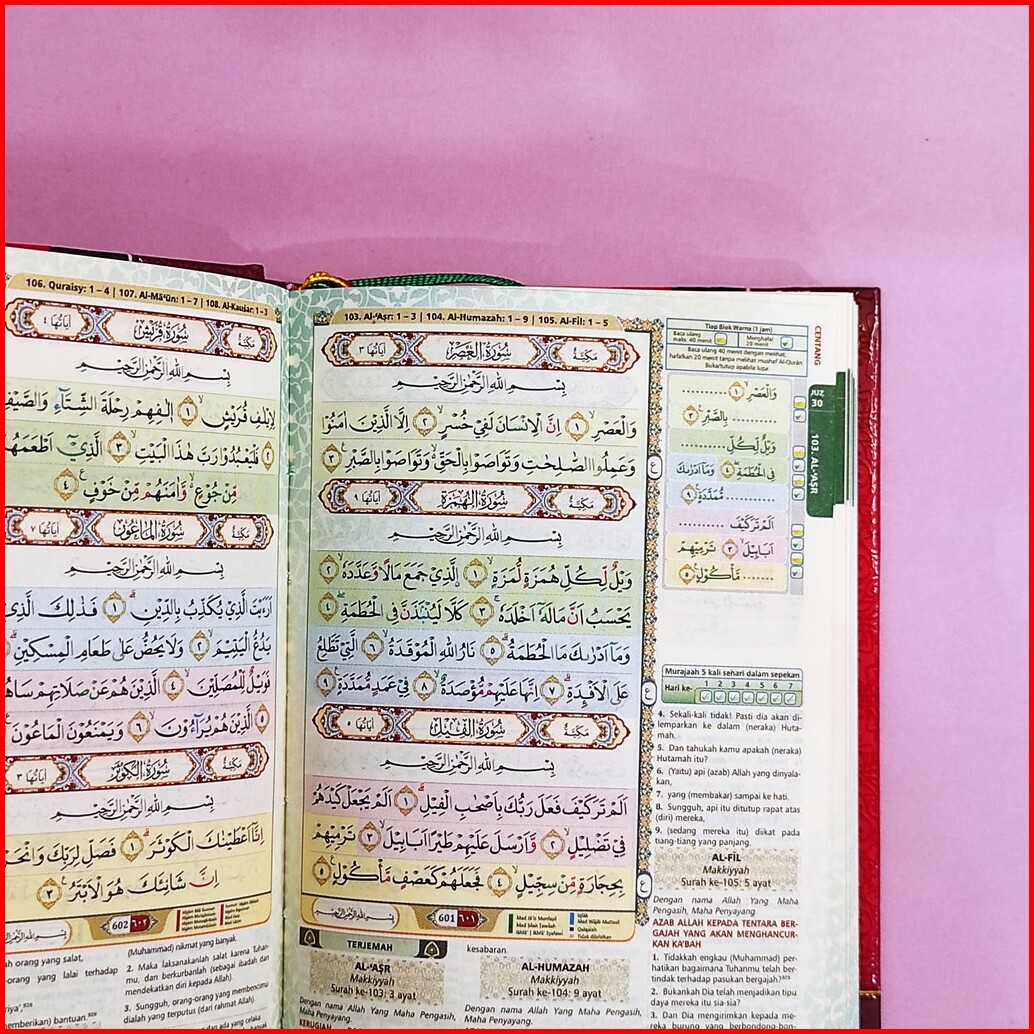 103. Al-'Aṣr: 1 – 3 | 104. Al-Humazah: 1 – 9 | 105. Al-Fīl: 1 – 5
مكية سورة العصر آياتها ٣
بِسْمِ اللّٰهِ الرَّحْمٰنِ الرَّحِيْمِ
وَالْعَصْرِۙ ١ اِنَّ الْاِنْسَانَ لَفِيْ خُسْرٍۙ ٢ اِلَّا الَّذِيْنَ اٰمَنُوْا
وَعَمِلُوا الصّٰلِحٰتِ وَتَوَاصَوْا بِالْحَقِّ ەۙ وَتَوَاصَوْا بِالصَّبْرِ ٣
مكية سورة الهمزة آياتها ٩
بِسْمِ اللّٰهِ الرَّحْمٰنِ الرَّحِيْمِ
وَيْلٌ لِّكُلِّ هُمَزَةٍ لُّمَزَةٍۙ ١ ۨالَّذِيْ جَمَعَ مَالًا وَّعَدَّدَهٗۙ ٢
يَحْسَبُ اَنَّ مَالَهٗٓ اَخْلَدَهٗۚ ٣ كَلَّا لَيُنْۢبَذَنَّ فِى الْحُطَمَةِۖ ٤
وَمَآ اَدْرٰىكَ مَا الْحُطَمَةُۗ ٥ نَارُ اللّٰهِ الْمُوْقَدَةُۙ ٦ الَّتِيْ تَطَّلِعُ
عَلَى الْاَفْـِٕدَةِۗ ٧ اِنَّهَا عَلَيْهِمْ مُّؤْصَدَةٌۙ ٨ فِيْ عَمَدٍ مُّمَدَّدَةٍ ٩
مكية سورة الفيل آياتها ٥
بِسْمِ اللّٰهِ الرَّحْمٰنِ الرَّحِيْمِ
اَلَمْ تَرَ كَيْفَ فَعَلَ رَبُّكَ بِاَصْحٰبِ الْفِيْلِۗ ١ اَلَمْ يَجْعَلْ كَيْدَهُمْ
فِيْ تَضْلِيْلٍۙ ٢ وَّاَرْسَلَ عَلَيْهِمْ طَيْرًا اَبَابِيْلَۙ ٣ تَرْمِيْهِمْ
بِحِجَارَةٍ مِّنْ سِجِّيْلٍۙ ٤ فَجَعَلَهُمْ كَعَصْفٍ مَّأْكُوْلٍ ٥
601 ٦٠١
TERJEMAH
AL-'AṢR
Makkiyyah
Surah ke-103: 3 ayat
Dengan nama Allah Yang Maha Pengasih,
Maha Penyayang.
KERUGIAN
kesabaran.
AL-HUMAZAH
Makkiyyah
Surah ke-104: 9 ayat
Dengan nama Allah Yang Maha Pengasih,
Maha Penyayang.
Tiap Blok Warna (1 jam)
Baca ulang maks. 40 menit
Menghafal 20 menit
Baca ulang 40 menit dengan melihat,
hafalkan 20 menit tanpa melihat mushaf Al-Qurān
Buka/tutup apabila lupa
CENTANG
JUZ
30
103. AL-'AṢR
وَالْعَصْرِۙ ١ ..........
.......... بِالصَّبْرِ ٣
وَيْلٌ لِّكُلِّ ..........
فِى الْحُطَمَةِۖ ٤ وَمَآ اَدْرٰىكَ
.......... مُّمَدَّدَةٍ ٩
اَلَمْ تَرَ كَيْفَ ..........
اَبَابِيْلَۙ ٣ تَرْمِيْهِمْ
.......... مَّأْكُوْلٍ ٥
Murajaah 5 kali sehari dalam sepekan
Hari ke- 1 2 3 4 5 6 7
4. Sekali-kali tidak! Pasti dia akan di-
lemparkan ke dalam (neraka) Huta-
mah,
5. Dan tahukah kamu apakah (neraka)
Hutamah itu?
6. (Yaitu) api (azab) Allah yang dinyala-
kan,
7. yang (membakar) sampai ke hati.
8. Sungguh, api itu ditutup rapat atas
(diri) mereka,
9. (sedang mereka itu) diikat pada
tiang-tiang yang panjang.
AL-FĪL
Makkiyyah
Surah ke-105: 5 ayat
Dengan nama Allah Yang Maha
Pengasih, Maha Penyayang.
AZAB ALLAH KEPADA TENTARA BER-
GAJAH YANG AKAN MENGHANCUR-
KAN KA'BAH
1. Tidakkah engkau (Muhammad) per-
hatikan bagaimana Tuhanmu telah ber-
tindak terhadap pasukan bergajah?
2. Bukankah Dia telah menjadikan tipu
daya mereka itu sia-sia?
3. Dan Dia mengirimkan kepada me-
reka burung yang berbondong-bon-
106. Quraisy: 1 – 4 | 107. Al-Mā'ūn: 1 – 7 | 108. Al-Kauṡar: 1 – 3
مكية سورة قريش آياتها ٤
بِسْمِ اللّٰهِ الرَّحْمٰنِ الرَّحِيْمِ
لِاِيْلٰفِ قُرَيْشٍۙ ١ اٖلٰفِهِمْ رِحْلَةَ الشِّتَاۤءِ وَالصَّيْفِ
٢ فَلْيَعْبُدُوْا رَبَّ هٰذَا الْبَيْتِۙ ٣ الَّذِيْٓ اَطْعَمَهُمْ
مِّنْ جُوْعٍ ەۙ وَّاٰمَنَهُمْ مِّنْ خَوْفٍ ٤
مكية سورة الماعون آياتها ٧
بِسْمِ اللّٰهِ الرَّحْمٰنِ الرَّحِيْمِ
اَرَءَيْتَ الَّذِيْ يُكَذِّبُ بِالدِّيْنِۗ ١ فَذٰلِكَ الَّذِيْ
يَدُعُّ الْيَتِيْمَۙ ٢ وَلَا يَحُضُّ عَلٰى طَعَامِ الْمِسْكِيْنِۗ
فَوَيْلٌ لِّلْمُصَلِّيْنَۙ ٤ الَّذِيْنَ هُمْ عَنْ صَلَاتِهِمْ سَاهُ
٥ الَّذِيْنَ هُمْ يُرَاۤءُوْنَۙ ٦ وَيَمْنَعُوْنَ الْمَاعُوْنَ
مكية سورة الكوثر آياتها ٣
بِسْمِ اللّٰهِ الرَّحْمٰنِ الرَّحِيْمِ
اِنَّآ اَعْطَيْنٰكَ الْكَوْثَرَۗ ١ فَصَلِّ لِرَبِّكَ وَانْحَرْ
اِنَّ شَانِئَكَ هُوَ الْاَبْتَرُ ٣
602 ٦٠٢
orang yang salat,
orang yang lalai terhadap
memberikan) bantuan.
(Muhammad) nikmat yang banyak.
2. Maka laksanakanlah salat karena Tuhan-
mu, dan berkurbanlah (sebagai ibadah dan
mendekatkan diri kepada Allah).
3. Sungguh, orang-orang yang membencimu
dialah yang terputus (dari rahmat Allah).